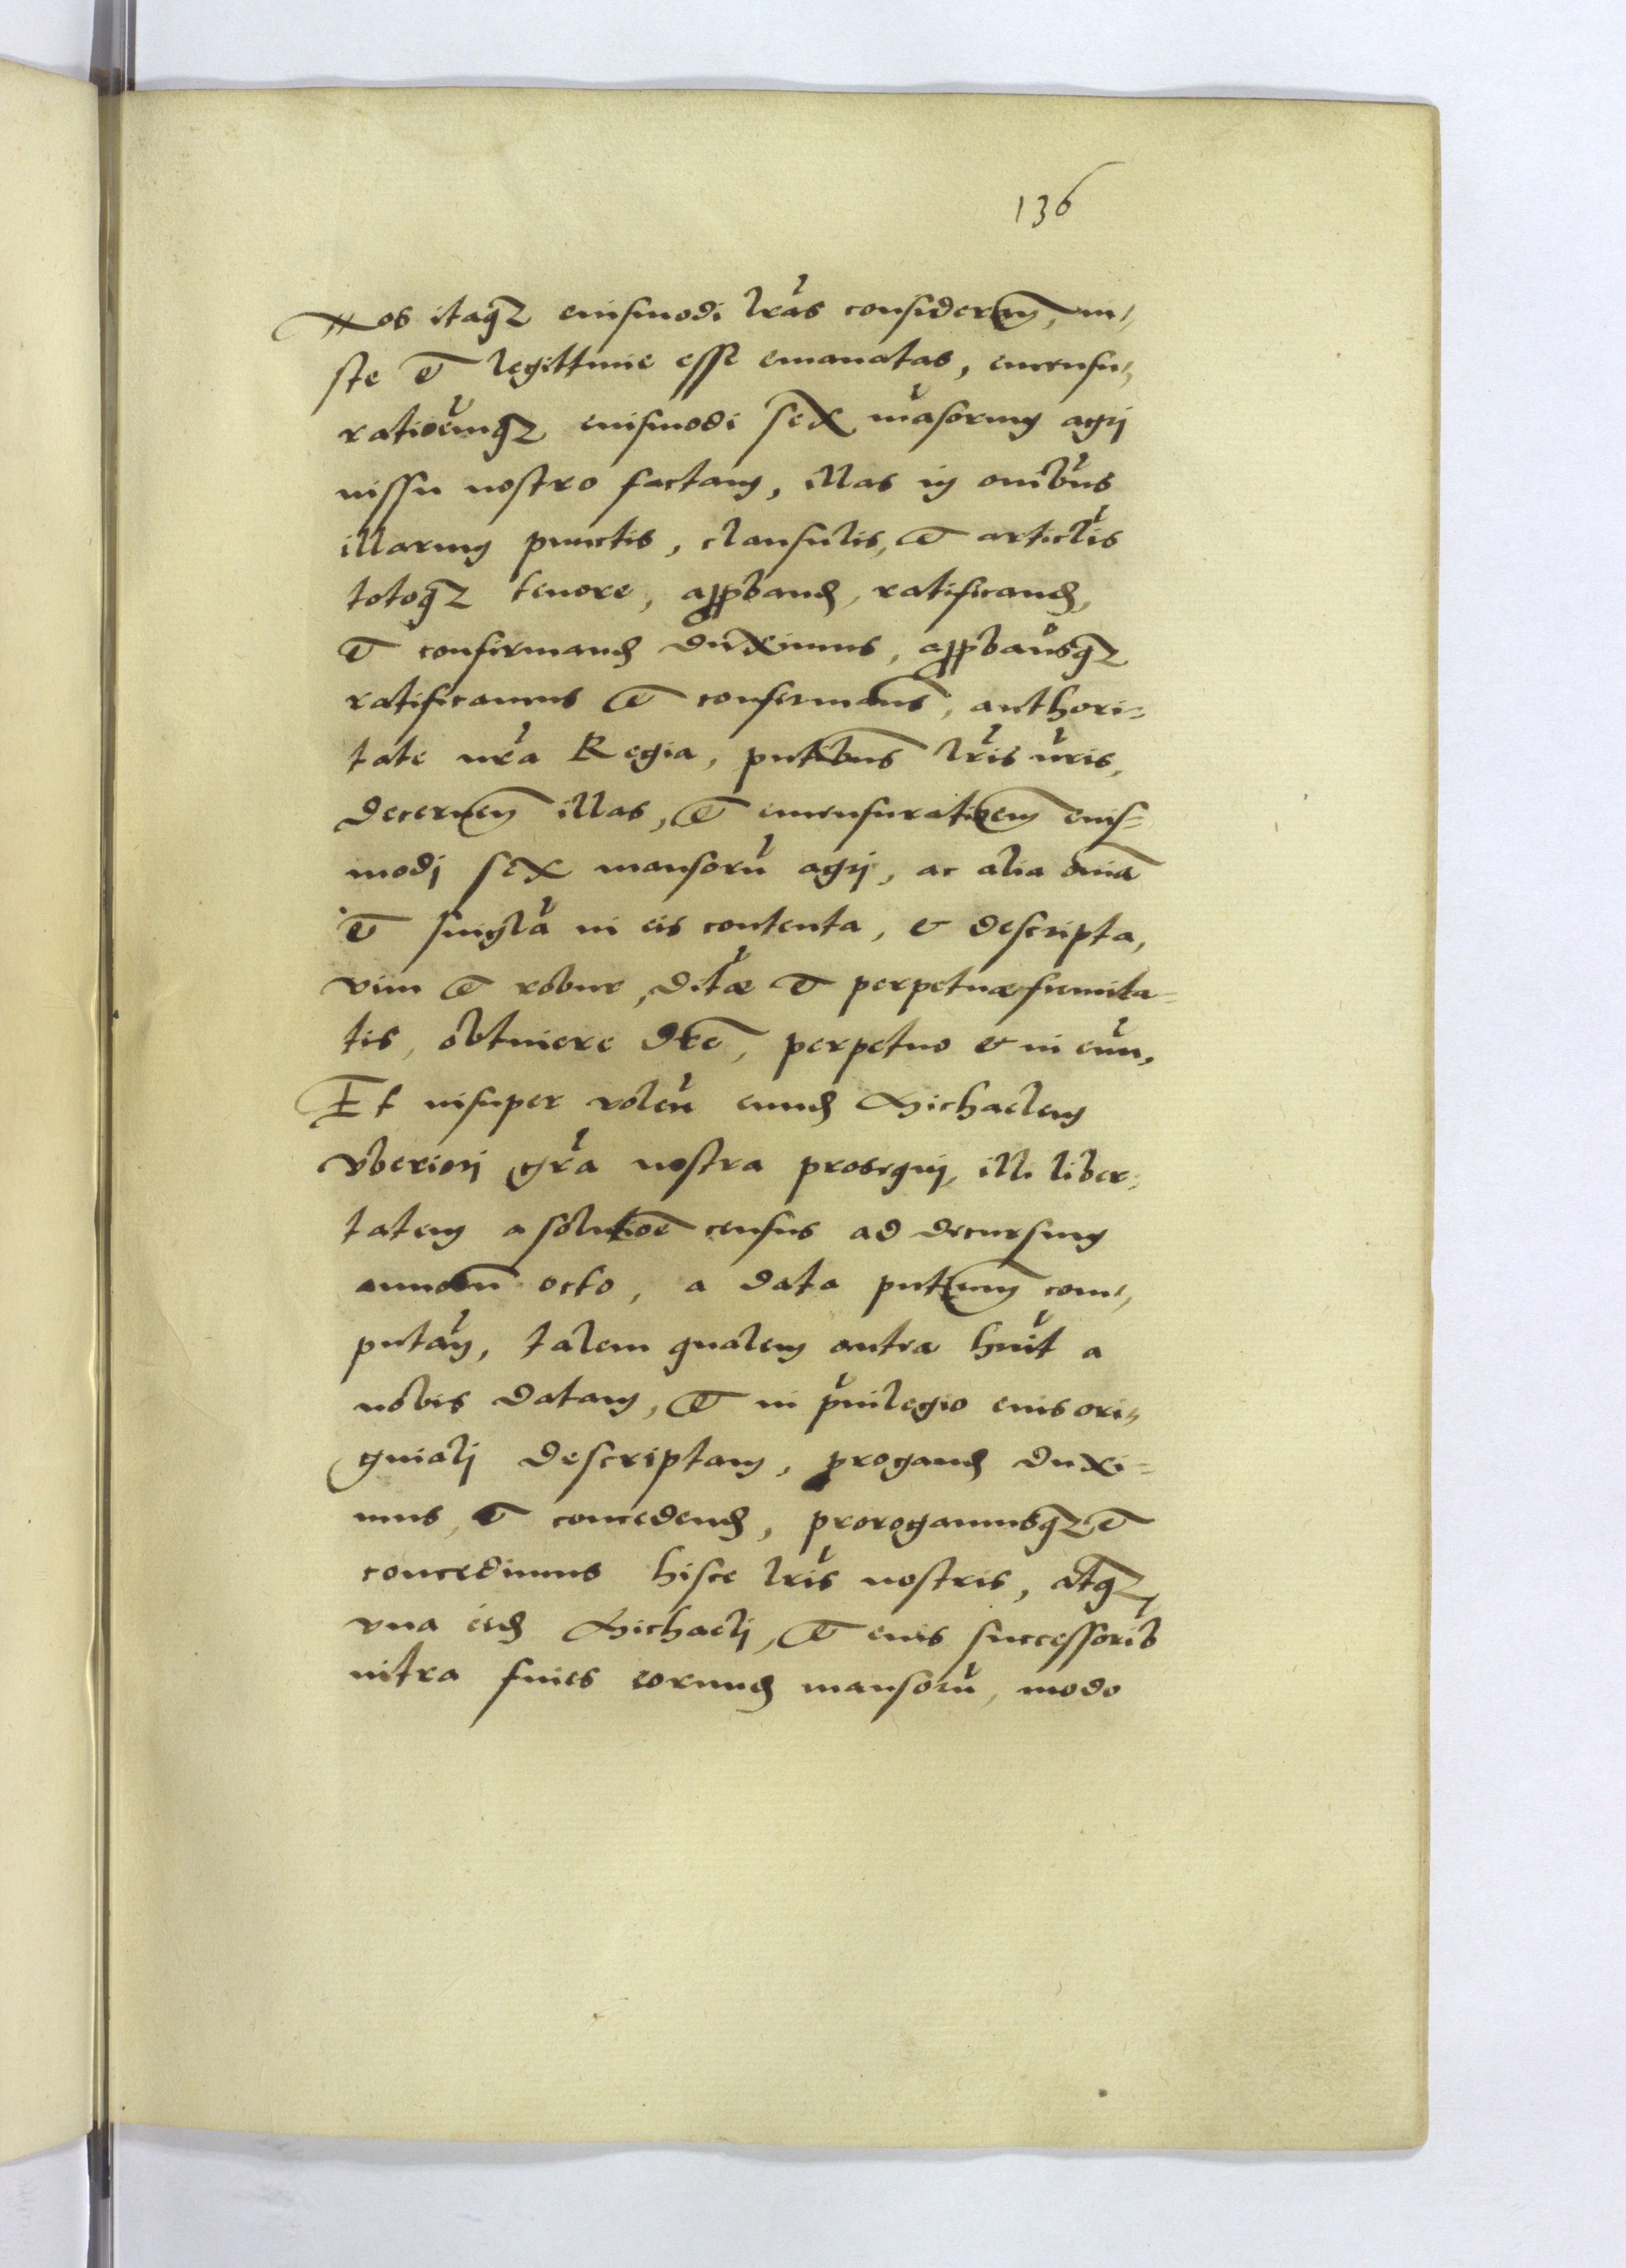 136
Nos itaq3 eiusmodi lras consideran, iu„
ste et legittime esse emanatas, emensu„
rationemq3 eiusmodi sex masorum agrj
iussu nostro factam, illas in onibus
illarum punctis, clausulis, et articlis
totoq3 tenore, appband, ratificand,
et confirmand duximus, appbamusq3
ratificamus et confirmamus, authori=
tate nra Regia, pntibus lris nris,
decernen illas, et emensurationem eius=
modj sex mansoru agrj, ac alia omia
et singla in eis contenta, & descripta,
vim et robur, ditæ et perpetuæ firmita=
tis, obtinere dre, perpetuo & in euu,
Et insuper volen eund Michaelem
vberiorj gra nostra prosequj, illi liber=
tatem a solutioe census ad decursum
annoru octo, a data pntium com„
putan, talem qualem antea huit a
nobis datam, et in priuilegio eius ori„
ginalj descriptam, progand duxi=
mus, et concedend, prorogamusq3 et
concedimus hisce lris nostris, atq3
vna eid Michaelj, et eius successorib
intra fines eorund mansoru, modo